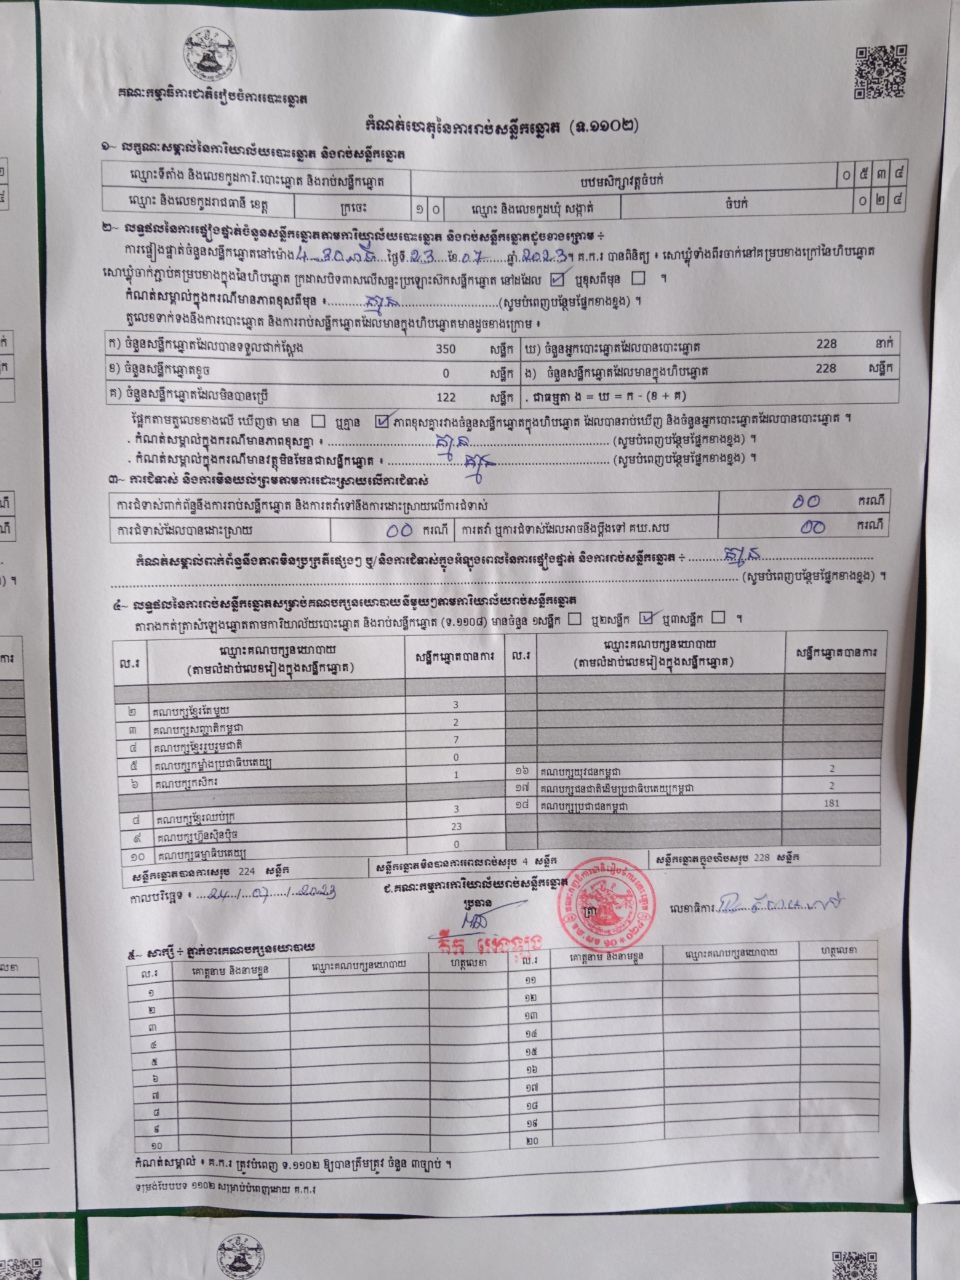 គណៈកម្មាធិការជាតិរៀបចំការបោះឆ្នោត
កំណត់ហេតុនៃការរាប់សន្លឹកឆ្នោត (ទ.១១០២)
១~ លក្ខណៈសម្គាល់នៃការិយាល័យបោះឆ្នោត និងរាប់សន្លឹកឆ្នោត
ឈ្មោះទីតាំង និងលេខកូដការិ.បោះឆ្នោត និងរាប់សន្លឹកឆ្នោត បឋមសិក្សាវត្តចំបក់ ០ ៥ ៣ ៤
ឈ្មោះ និងលេខកូដរាជធានី ខេត្ត ក្រចេះ ១ ០ ឈ្មោះ និងលេខកូដឃុំ សង្កាត់ ចំបក់ ០ ២ ៤
២~ លទ្ធផលនៃការផ្ទៀងផ្ទាត់ចំនួនសន្លឹកឆ្នោតតាមការិយាល័យបោះឆ្នោត និងរាប់សន្លឹកឆ្នោតដូចខាងក្រោម ÷
ការផ្ទៀងផ្ទាត់ចំនួនសន្លឹកឆ្នោតនៅម៉ោង 4:30នាទី ថ្ងៃទី.23 ខែ.07 ឆ្នាំ.2023។ គ.ក.រ បានពិនិត្យ ៖ សោឃ្នុំទាំងពីរចាក់នៅគម្របខាងក្រៅនៃហិបឆ្នោត
សោឃ្នុំចាក់ភ្ជាប់គម្របខាងក្នុងនៃហិបឆ្នោត ក្រដាសបិទពាសលើសន្ទះប្រឡោះស៊កសន្លឹកឆ្នោត នៅដដែល ☑ ឬខុសពីមុន ☐ ។
កំណត់សម្គាល់ក្នុងករណីមានភាពខុសពីមុន ៖ គ្មាន (សូមបំពេញបន្ថែមផ្នែកខាងខ្នង) ។
តួលេខទាក់ទងនឹងការបោះឆ្នោត និងការរាប់សន្លឹកឆ្នោតដែលមានក្នុងហិបឆ្នោតមានដូចខាងក្រោម ៖
ក) ចំនួនសន្លឹកឆ្នោតដែលបានទទួលជាក់ស្តែង 350 សន្លឹក ឃ) ចំនួនអ្នកបោះឆ្នោតដែលបានបោះឆ្នោត 228 នាក់
ខ) ចំនួនសន្លឹកឆ្នោតខូច 0 សន្លឹក ង) ចំនួនសន្លឹកឆ្នោតដែលមានក្នុងហិបឆ្នោត 228 សន្លឹក
គ) ចំនួនសន្លឹកឆ្នោតដែលមិនបានប្រើ 122 សន្លឹក . ជាធម្មតា ង = ឃ = ក - (ខ + គ)
ផ្អែកតាមតួលេខខាងលើ ឃើញថា មាន ☐ ឬគ្មាន ☑ ភាពខុសគ្នារវាងចំនួនសន្លឹកឆ្នោតក្នុងហិបឆ្នោត ដែលបានរាប់ឃើញ និងចំនួនអ្នកបោះឆ្នោតដែលបានបោះឆ្នោត ។
. កំណត់សម្គាល់ក្នុងករណីមានភាពខុសគ្នា ៖ គ្មាន (សូមបំពេញបន្ថែមផ្នែកខាងខ្នង) ។
. កំណត់សម្គាល់ក្នុងករណីមានវត្ថុមិនមែនជាសន្លឹកឆ្នោត ៖ គ្មាន (សូមបំពេញបន្ថែមផ្នែកខាងខ្នង) ។
៣~ ការជំទាស់ និងការមិនយល់ព្រមតាមការដោះស្រាយលើការជំទាស់
ការជំទាស់ពាក់ព័ន្ធនឹងការរាប់សន្លឹកឆ្នោត និងការតវ៉ាទៅនឹងការដោះស្រាយលើការជំទាស់ 00 ករណី
ការជំទាស់ដែលបានដោះស្រាយ 00 ករណី ការតវ៉ា ឬការជំទាស់ដែលអាចនឹងប្តឹងទៅ គឃ.សប 00 ករណី
កំណត់សម្គាល់ពាក់ព័ន្ធនឹងភាពមិនប្រក្រតីផ្សេងៗ ឬ/និងការជំទាស់ក្នុងអំឡុងពេលនៃការផ្ទៀងផ្ទាត់ និងការរាប់សន្លឹកឆ្នោត ÷ គ្មាន
(សូមបំពេញបន្ថែមផ្នែកខាងខ្នង) ។
៤~ លទ្ធផលនៃការរាប់សន្លឹកឆ្នោតសម្រាប់គណបក្សនយោបាយនីមួយៗតាមការិយាល័យរាប់សន្លឹកឆ្នោត
តារាងកត់ត្រាសំឡេងឆ្នោតតាមការិយាល័យបោះឆ្នោត និងរាប់សន្លឹកឆ្នោត (ទ.១១០៨) មានចំនួន ១សន្លឹក ☐ ឬ២សន្លឹក ☑ ឬ៣សន្លឹក ☐ ។
ល.រ ឈ្មោះគណបក្សនយោបាយ (តាមលំដាប់លេខរៀងក្នុងសន្លឹកឆ្នោត) សន្លឹកឆ្នោតបានការ ល.រ ឈ្មោះគណបក្សនយោបាយ (តាមលំដាប់លេខរៀងក្នុងសន្លឹកឆ្នោត) សន្លឹកឆ្នោតបានការ
២ គណបក្សខ្មែរតែមួយ 3
៣ គណបក្សសញ្ជាតិកម្ពុជា 2
៤ គណបក្សខ្មែររួបរួមជាតិ 7
៥ គណបក្សកម្លាំងប្រជាធិបតេយ្យ 0
៦ គណបក្សកសិករ 1 ១៦ គណបក្សយុវជនកម្ពុជា 2
១៧ គណបក្សជនជាតិដើមប្រជាធិបតេយ្យកម្ពុជា 2
៨ គណបក្សខ្មែរឈប់ក្រ 3 ១៨ គណបក្សប្រជាជនកម្ពុជា 181
៩ គណបក្សហ៊្វុនស៊ិនប៉ិច 23
១០ គណបក្សធម្មាធិបតេយ្យ 0
សន្លឹកឆ្នោតបានការសរុប 224 សន្លឹក សន្លឹកឆ្នោតមិនបានការពេលរាប់សរុប 4 សន្លឹក សន្លឹកឆ្នោតក្នុងហិបសរុប 228 សន្លឹក
កាលបរិច្ឆេទ ៖ 24/07/2023 ជ.គណៈកម្មការការិយាល័យរាប់សន្លឹកឆ្នោត
ប្រធាន ត្រា លេខាធិការ
៥~ សាក្សី ÷ ភ្នាក់ងារគណបក្សនយោបាយ
ល.រ គោត្តនាម និងនាមខ្លួន ឈ្មោះគណបក្សនយោបាយ ហត្ថលេខា ល.រ គោត្តនាម និងនាមខ្លួន ឈ្មោះគណបក្សនយោបាយ ហត្ថលេខា
១ ១១
២ ១២
៣ ១៣
៤ ១៤
៥ ១៥
៦ ១៦
៧ ១៧
៨ ១៨
៩ ១៩
១០ ២០
កំណត់សម្គាល់ ៖ គ.ក.រ ត្រូវបំពេញ ទ.១១០២ ឱ្យបានត្រឹមត្រូវ ចំនួន ៣ច្បាប់ ។
ទម្រង់បែបបទ ១១០២ សម្រាប់បំពេញដោយ គ.ក.រ